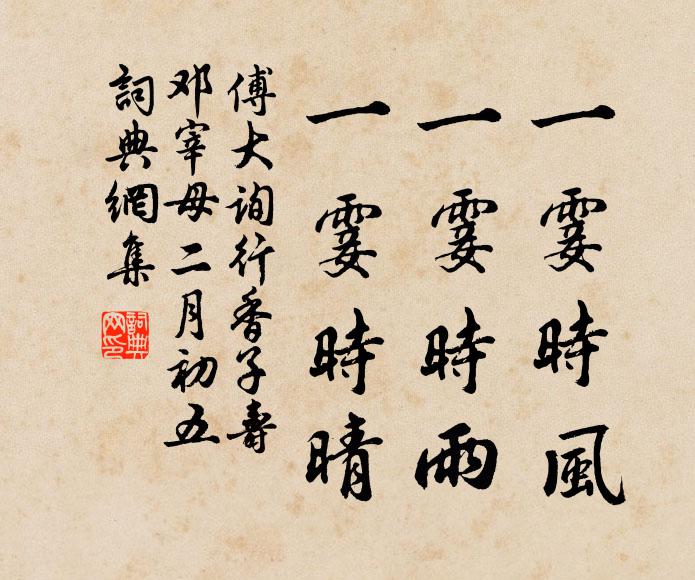 一霎時風
一霎時雨
一霎時晴
傅大询行香子壽
邓宰母二月初五
詞典網集
詞典
网印